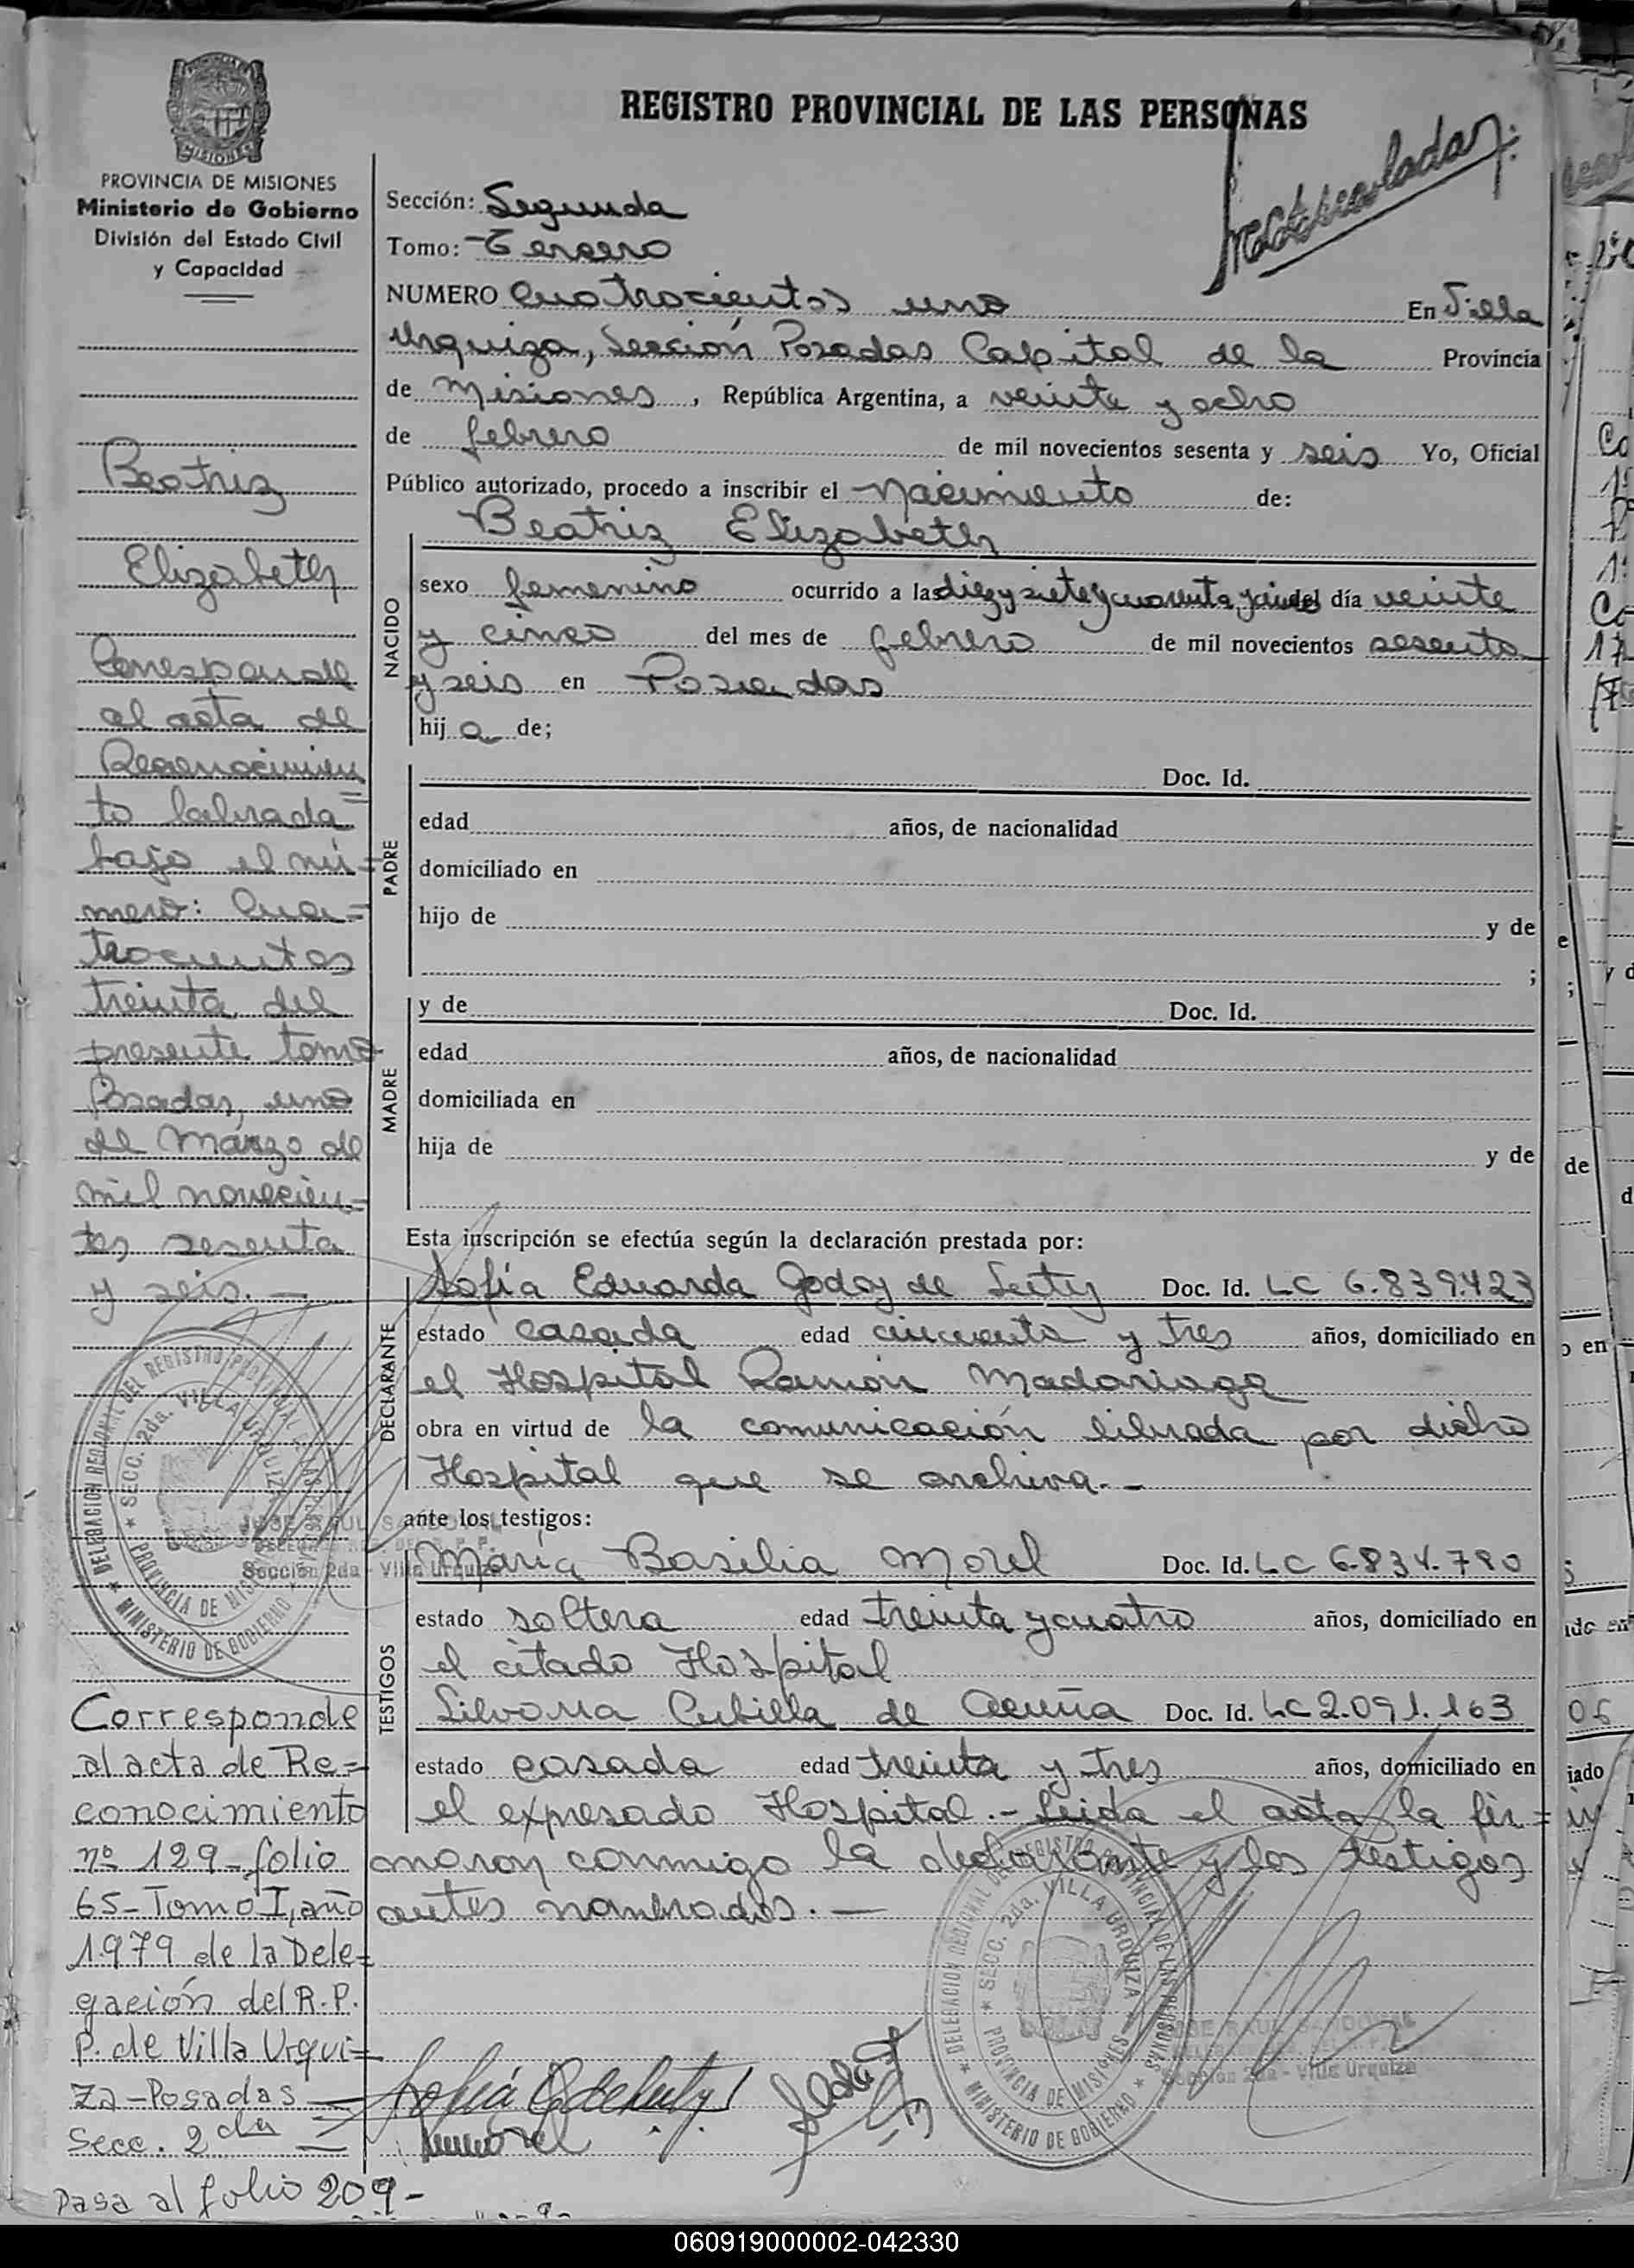 REGISTRO PROVINCIAL DE LAS PERSONAS
MISIONES
PROVINCIA DE MISIONES
Ministerio de Gobierno
División del Estado Civil
y Capacidad
Beatriz
Elizabeth
Corresponde
al acta de
Reconocimien
to labrada
bajo el nú=
mero: Cua=
trocientos
treinta del
presente tomo
Posadas, uno
de Marzo de
mil novecien=
tos sesenta
y seis.-
DELEGACION REGIONAL DEL REGISTRO PROVINCIAL DE LAS PERSONAS
SECC. 2da. VILLA URQUIZA
PROVINCIA DE MISIONES
MINISTERIO DE GOBIERNO
JOSE RAUL SANDOVAL
Sección 2da - Villa Urquiza
Corresponde
al acta de Re=
conocimiento
nº 129-folio
65-Tomo I, año
1979 de la Dele=
gación del R.P.
P. de Villa Urqui=
za-Posadas
Secc. 2da
Pasa al folio 209-
Matriculada
Sección: Segunda
Tomo: Tercero
NUMERO Cuatrocientos uno En Villa
Urquiza, Sección Posadas Capital de la Provincia
de Misiones, República Argentina, a veinte y ocho
de febrero de mil novecientos sesenta y seis Yo, Oficial
Público autorizado, procedo a inscribir el Nacimiento de:
NACIDO
Beatriz Elizabeth
sexo femenino ocurrido a las diez y siete y cuarenta y cinco del día veinte
y cinco del mes de febrero de mil novecientos sesenta
y seis en Posadas
hija de;
PADRE
Doc. Id.
edad años, de nacionalidad
domiciliado en
hijo de y de
;
MADRE
y de Doc. Id.
edad años, de nacionalidad
domiciliada en
hija de y de
Esta inscripción se efectúa según la declaración prestada por:
DECLARANTE
Sofía Eduarda Godoy de Doc. Id. LC 6.839.423
estado casada edad cincuenta y tres años, domiciliado en
el Hospital Ramón Madariaga
obra en virtud de la comunicación librada por dicho
Hospital que se archiva.-
ante los testigos:
TESTIGOS
María Basilia Morel Doc. Id. LC 6.834.790
estado soltera edad treinta y cuatro años, domiciliado en
el citado Hospital
Silvana Cubilla de Acuña Doc. Id. LC 2.091.163
estado casada edad treinta y tres años, domiciliado en
el expresado Hospital.- Leida el acta la fir=
maron conmigo la declarante y los testigos
antes nombrados.-
DELEGACION REGIONAL DEL REGISTRO PROVINCIAL DE LAS PERSONAS
SECC. 2da. VILLA URQUIZA
PROVINCIA DE MISIONES
MINISTERIO DE GOBIERNO
JOSE RAUL SANDOVAL
Sección 2da - Villa Urquiza
060919000002-042330